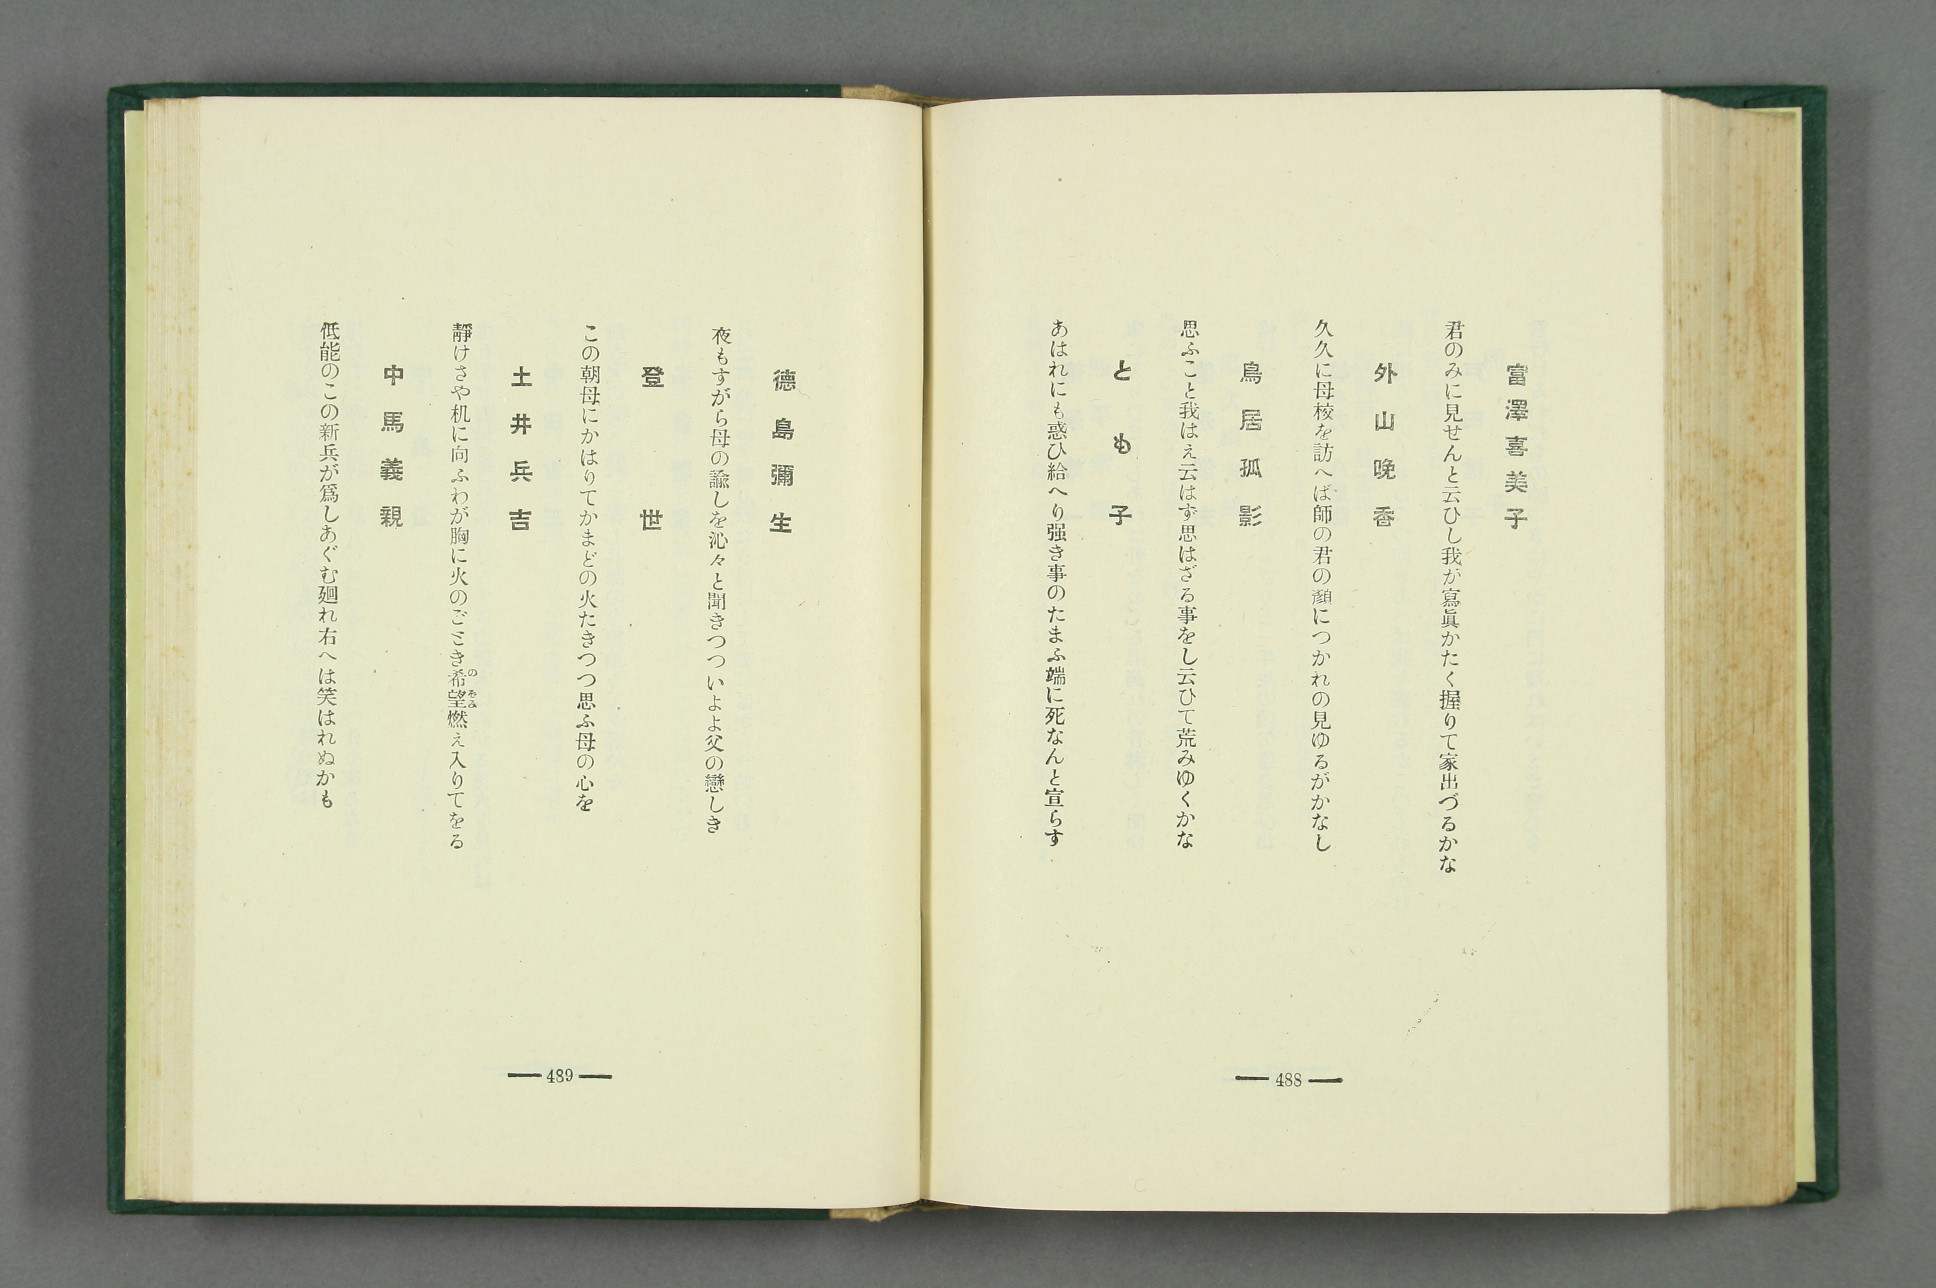 富澤喜美子
君のみに見せんと云ひし我が寫眞かたく握りて家出づるかな
外山晩香
久久に母校を訪へば師の君の顏につかれの見ゆるがかなし
鳥居孤影
思ふこと我はえ云はず思はざる事をし云ひて荒みゆくかな
とも子
あはれにも惑ひ給へり强き事のたまふ端に死なんと宣らす
488
德島彌生
夜もすがら母の諭しを沁々と聞きつついよよ父の戀しき
登世
この朝母にかはりてかまどの火たきつつ思ふ母の心を
土井兵吉
靜けさや机に向ふわが胸に火のごとき希望燃え入りてをる
のぞみ
中馬義親
低能のこの新兵が爲しあぐむ廻れ右へは笑はれぬかも
489